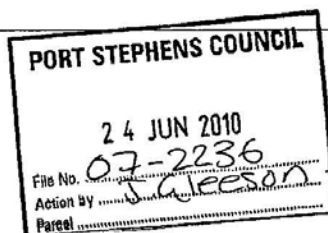 PORT STEPHENS COUNCIL
24 JUN 2010
File No. 07-2236
Action by J Gleeson
Parcel